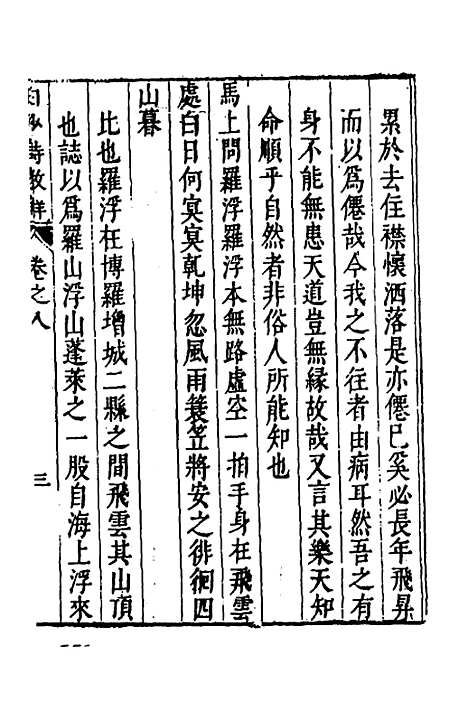 累於去住襟懷洒落是亦僊已奚必長年飛昇
而以爲僊哉今我之不往者由病耳然吾之有
身不能無患天道豈無縁故哉又言其樂天知
命順乎自然者非俗人所能知也
馬上問羅浮羅浮本無路虛空一拍手身在飛雲
處白日何㝠㝠乾坤忽風雨簔笠將安之徘徊四
山暮
比也羅浮在博羅增城二縣之間飛雲其山頂
也誌以爲羅山浮山蓬萊之一股自海上浮來
白沙詩教解 卷之八 三